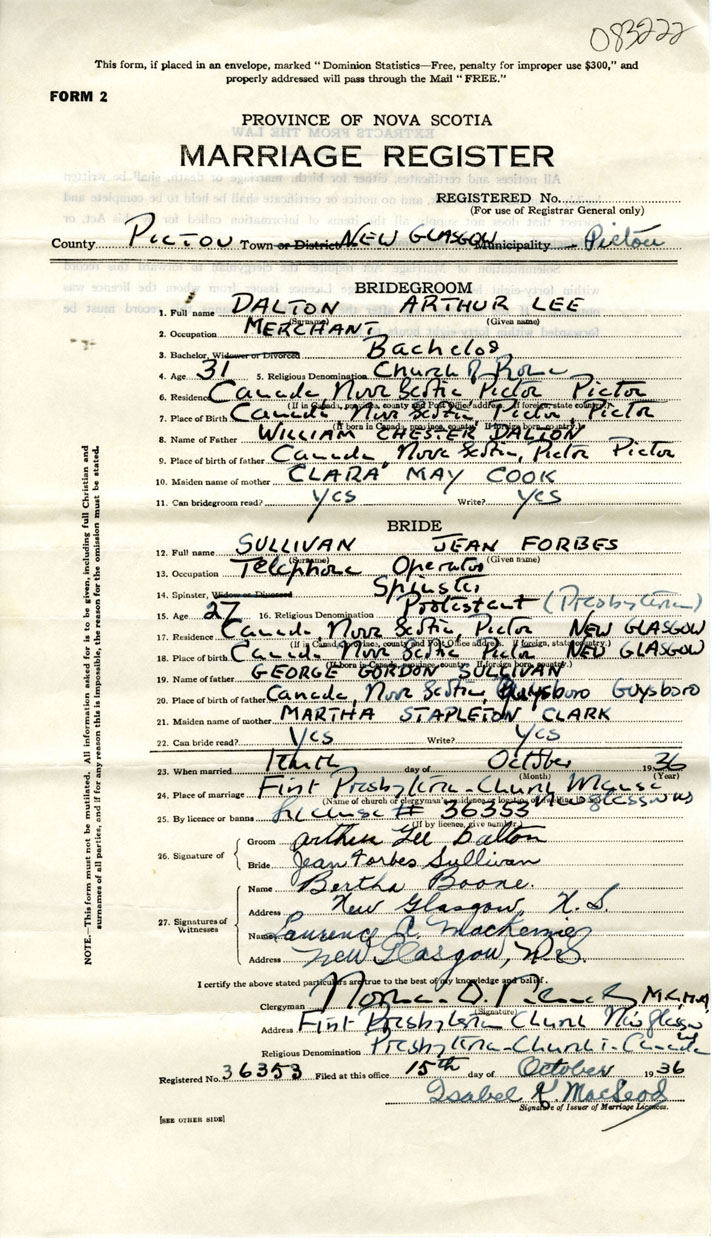 083222
This form, if placed in an envelope, marked "Dominion Statistics—Free, penalty for improper use $300," and
properly addressed will pass through the Mail "FREE."
FORM 2
PROVINCE OF NOVA SCOTIA
MARRIAGE REGISTER
REGISTERED No.
(For use of Registrar General only)
County PICTOU Town or District NEW GLASGOW Municipality Pictou
BRIDEGROOM
1. Full name DALTON ARTHUR LEE
(Surname) (Given name)
2. Occupation MERCHANT
3. Bachelor, Widower or Divorced Bachelor
4. Age 31 5. Religious Denomination Church of Rome
6. Residence Canada, Nova Scotia, Pictou Pictou
(If in Canada, province, county and Post Office address. If foreign, state country.)
7. Place of Birth Canada, Nova Scotia, Pictou, Pictou
(If born in Canada, province, county. If foreign born, country.)
8. Name of Father WILLIAM CHESTER DALTON
9. Place of birth of father Canada, Nova Scotia, Pictou Pictou
10. Maiden name of mother CLARA MAY COOK
11. Can bridegroom read? yes Write? yes
BRIDE
12. Full name SULLIVAN JEAN FORBES
(Surname) (Given name)
13. Occupation Telephone Operator
14. Spinster, Widow or Divorced Spinster
15. Age 27 16. Religious Denomination Protestant (Presbyterian)
17. Residence Canada, Nova Scotia, Pictou NEW GLASGOW
(If in Canada, province, county and Post Office address. If foreign, state country.)
18. Place of birth Canada, Nova Scotia, Pictou NEW GLASGOW
(If born in Canada, province, county. If foreign born, country.)
19. Name of father GEORGE GORDON SULLIVAN
20. Place of birth of father Canada, Nova Scotia, Guysboro Guysboro
21. Maiden name of mother MARTHA STAPLETON CLARK
22. Can bride read? yes Write? yes
23. When married Tenth day of October 1936
(Month) (Year)
24. Place of marriage First Presbyterian Church Manse
(Name of church or clergyman's residence or location of dwelling in full) New Glasgow NS
25. By licence or banns License # 36353
(If by licence, give number)
26. Signature of
Groom Arthur Lee Dalton
Bride Jean Forbes Sullivan
27. Signatures of Witnesses
Name Bertha Boone.
Address New Glasgow, N.S.
Name Laurence A. Mackenzie
Address New Glasgow, N.S.
I certify the above stated particulars are true to the best of my knowledge and belief.
Clergyman Norman D.
(Signature)
Address First Presbyterian Church New Glasgow NS
Religious Denomination Presbyterian Church in Canada
Registered No. 36353 Filed at this office 15th day of October 1936
Isabel K. MacLeod
Signature of Issuer of Marriage Licences.
[SEE OTHER SIDE]
NOTE.—This form must not be mutilated. All information asked for is to be given, including full Christian and
surnames of all parties, and if for any reason this is impossible, the reason for the omission must be stated.